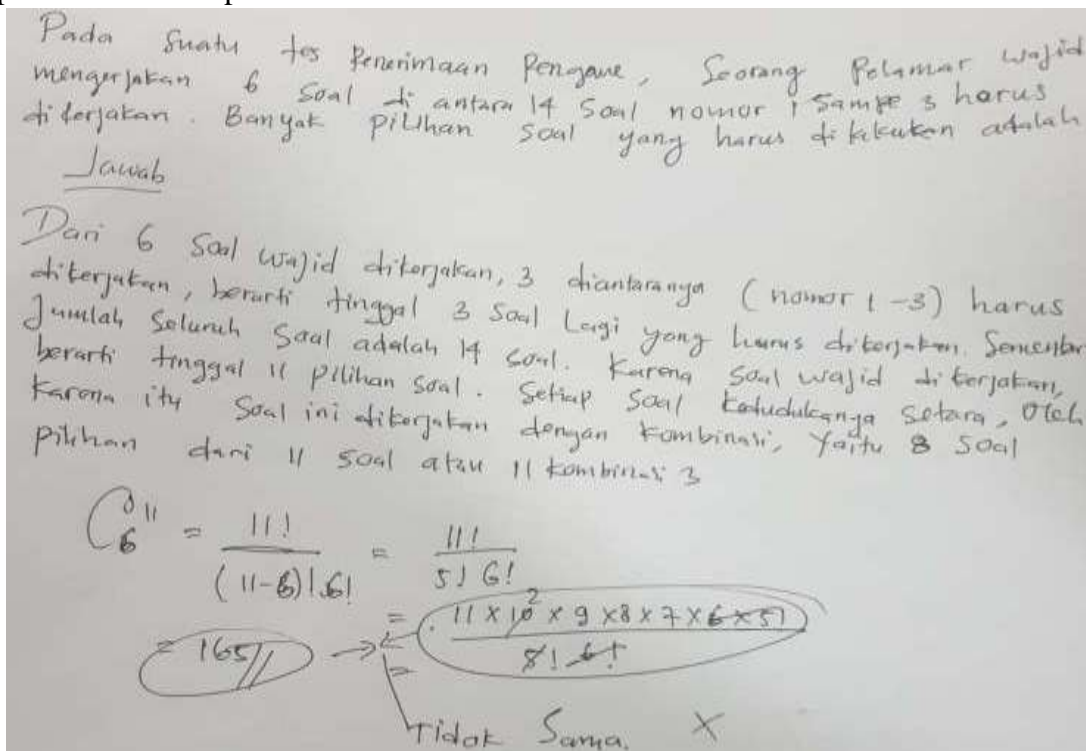 Pada Suatu tes Penerimaan Pengawe, Seorang Pelamar wajid
mengerjakan 6 Soal di antara 14 Soal nomor 1 Sampe 3 harus
dikerjakan. Banyak pilihan soal yang harus di lakukan adalah
Jawab
Dari 6 Soal wajid dikerjakan, 3 diantaranya (nomor 1-3) harus
dikerjakan, berarti tinggal 3 Soal Lagi yang harus dikerjakan. Sementar
Jumlah Seluruh Soal adalah 14 Soal. Karena Soal wajid dikerjakan,
berarti tinggal 11 pilihan soal. Setiap Soal kedudukanya setara, Oleh
Karena itu Soal ini dikerjakan dengan kombinasi, Yaitu 8 Soal
pilihan dari 11 soal atau 11 kombinasi 3
C 11 6 = 11! / (11-6)! 6! = 11! / 5! 6!
= 11 x 10 2 x 9 x 8 x 7 x 6 x 5! / 8! 6!
= 165 //
=
Tidak Sama. X